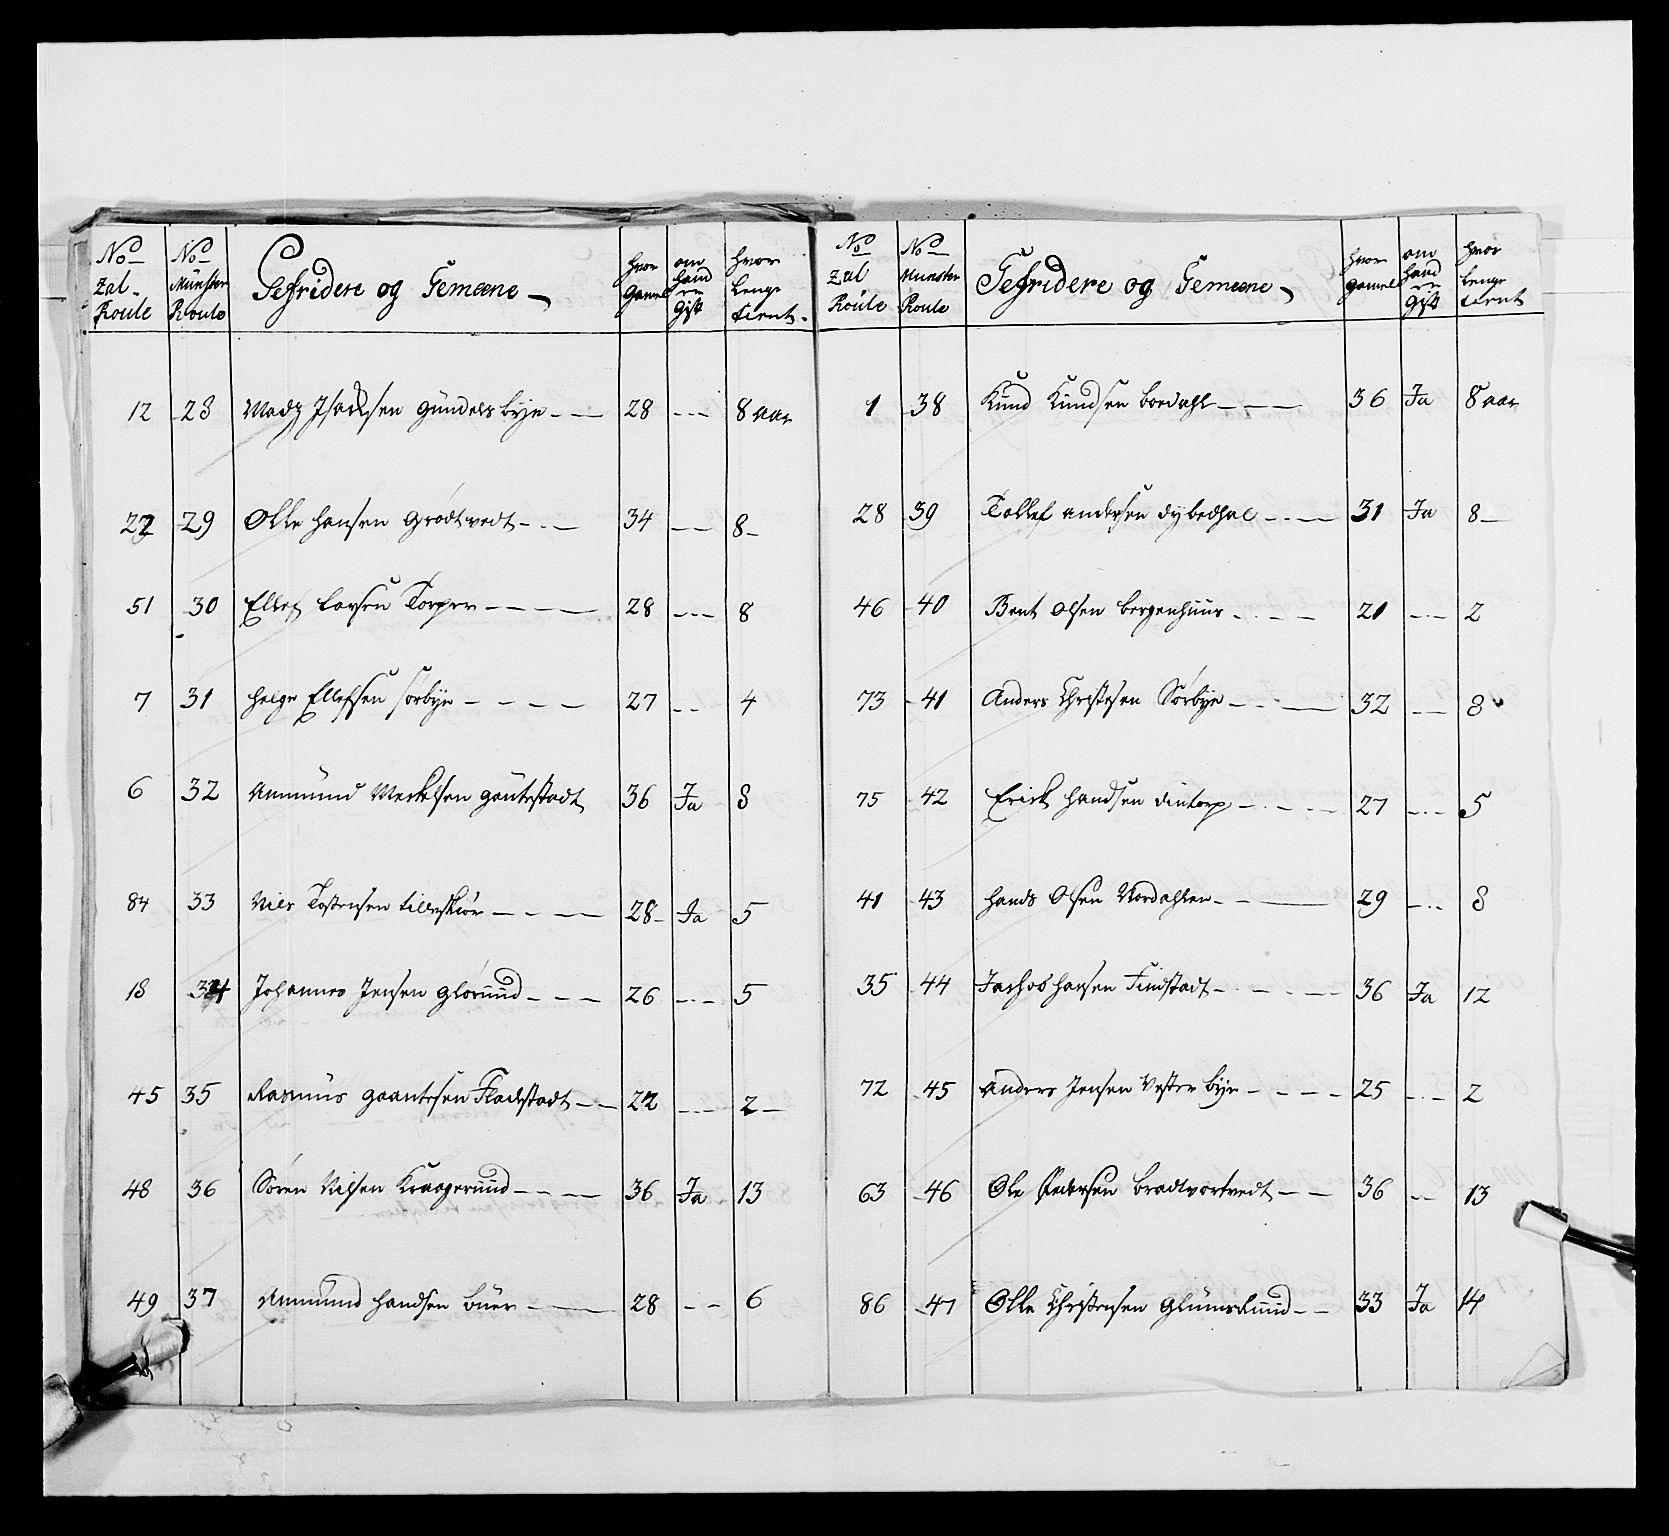 No
Zal-
Roule
No
Münster
Roule
Gefridere og Gemeene
hvor
gamel
om
hand
er
gift
hvor
lenge
tient
12 28 Madz Isachsen Gündersbÿe 28 8 aar
27 29 Olle Hansen Grödtvedt 34 8
51 30 Ellef Larsen Torper 28 8
7 31 Helge Ellefsen Sörbÿe 27 4
6 32 Ammünd Meckelsen Gautestadt 36 Ja 8
84 33 Nils Tostensen 28 Ja 5
18 34 Johannes Jensen Glorüüd 26 5
45 35 Rasmüs Gaautesen Flackstadt 22 2
48 36 Sören Nilsen Kraagerüüd 36 Ja 13
49 37 Ammünd Handsen Büer 28 6
No
Zal
Roule
No
Münster
Roule
Gefridere og Gemeene
hvor
gamel
om
hand
er
gift
hvor
lenge
tient
1 38 Knud Knudsen Bordahl 36 Ja 8 aar
28 39 Tollef Andersen Dÿbedahl 31 Ja 8
46 40 Bent Olsen Bergenhüüs 21 2
73 41 Anders Christesen Sörbÿe 32 8
75 42 Erick Handsen Dintorp 27 5
41 43 Hands Olsen Nordahlen 29 8
35 44 Jachob Hansen Findstadt 36 Ja 12
72 45 Anders Jensen Vesterbÿe 25 2
63 46 Ole Pedersen Bradtvortvedt 36 13
86 47 Olle Christensen Glümsrüüd 33 Ja 14